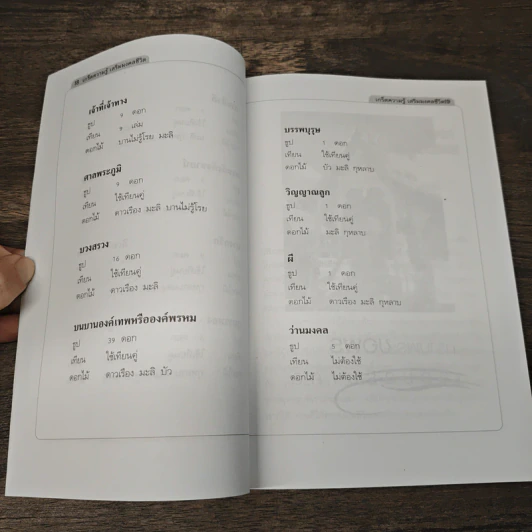 เกร็ดความรู้ เสริมมงคลชีวิต
เจ้าที่เจ้าทาง
ธูป 9 ดอก
เทียน 9 เล่ม
ดอกไม้ บานไม่รู้โรย มะลิ
ศาลพระภูมิ
ธูป 9 ดอก
เทียน ใช้เทียนคู่
ดอกไม้ ดาวเรือง มะลิ บานไม่รู้โรย
บวงสรวง
ธูป 16 ดอก
เทียน ใช้เทียนคู่
ดอกไม้ ดาวเรือง มะลิ
บนบานองค์เทพหรือองค์พรหม
ธูป 39 ดอก
เทียน ใช้เทียนคู่
ดอกไม้ ดาวเรือง มะลิ บัว
เกร็ดความรู้ เสริมมงคลชีวิต
บรรพบุรุษ
ธูป 1 ดอก
เทียน ใช้เทียนคู่
ดอกไม้ บัว มะลิ กุหลาบ
วิญญาณลูก
ธูป 1 ดอก
เทียน ใช้เทียนคู่
ดอกไม้ มะลิ กุหลาบ
ผี
ธูป 1 ดอก
เทียน ใช้เทียนคู่
ดอกไม้ ดาวเรือง มะลิ กุหลาบ
ว่านมงคล
ธูป 5 ดอก
เทียน ไม่ต้องใช้
ดอกไม้ ไม่ต้องใช้